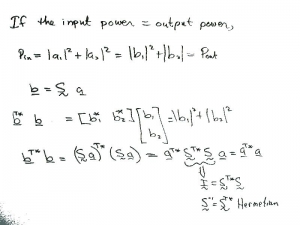 If the input power = output power,
Pin = |a₁|² + |a₂|² = |b₁|² + |b₂|² = Pout
b = S a
b^T* b = [b₁* b₂*] [b₁ b₂] = |b₁|² + |b₂|²
b^T* b = (S a)^T* (S a) = a^T* S^T* S a = a^T* a
I = S^T* S
S⁻¹ = S^T* Hermetian